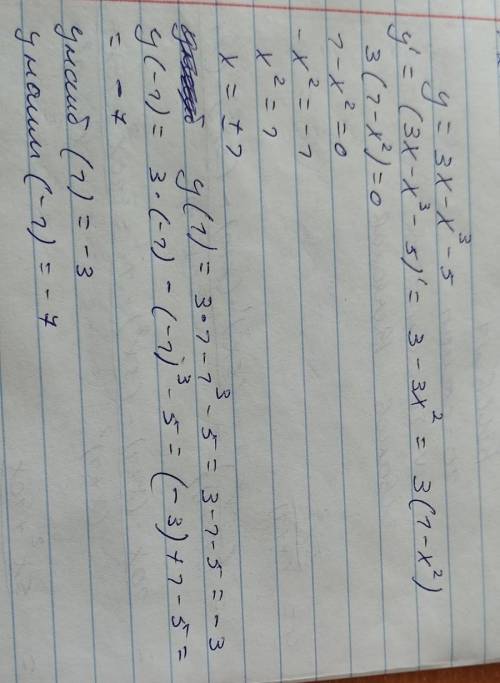 y = 3x - x³ - 5
y' = (3x - x³ - 5)' = 3 - 3x² = 3(1 - x²)
3(1 - x²) = 0
1 - x² = 0
- x² = - 1
x² = 1
x = ± 1
y(1) = 3 · 1 - 1³ - 5 = 3 - 1 - 5 = - 3
y(-1) = 3 · (-1) - (-1)³ - 5 = (-3) + 1 - 5 =
= - 7
y наиб (1) = - 3
y наим (-1) = - 7